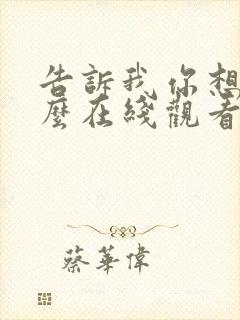 告訴我 你想
麼在綫觀看
蔡華偉